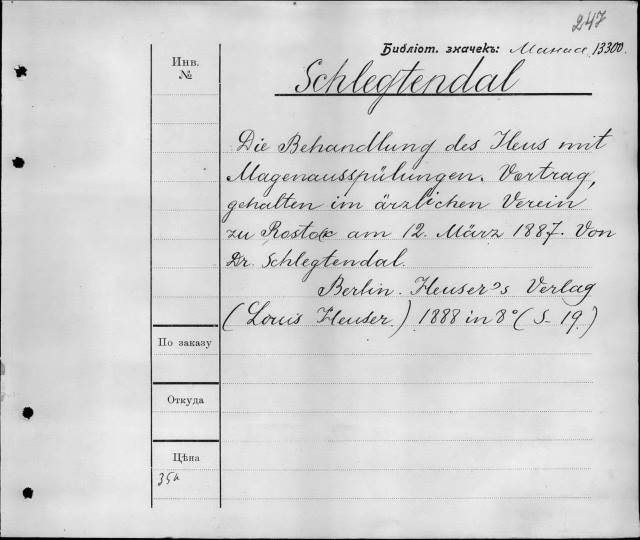 247
Библіот. значекъ: Манас. 13300.
Инв.
№
Schlegtendal
Die Behandlung des Ileus mit
Magenausspülungen. Vortrag,
gehalten im ärzlichen Verein
zu Rostock am 12. März 1887. Von
Dr. Schlegtendal.
Berlin. Heuser's Verlag
(Louis Heuser.) 1888 in 8° (S. 19.)
По заказу
Откуда
Цѣна